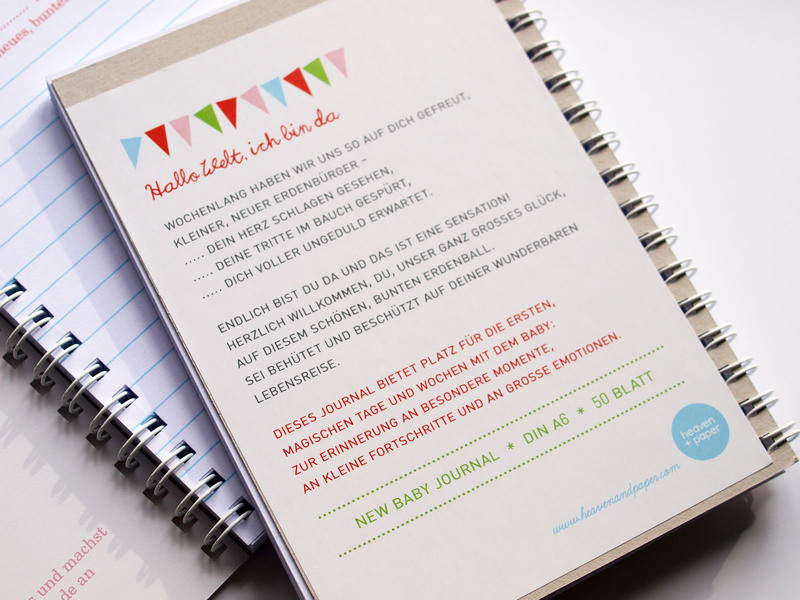 neues, buntes
Hallo Welt, ich bin da
WOCHENLANG HABEN WIR UNS SO AUF DICH GEFREUT,
KLEINER, NEUER ERDENBÜRGER –
..... DEIN HERZ SCHLAGEN GESEHEN,
..... DEINE TRITTE IM BAUCH GESPÜRT,
..... DICH VOLLER UNGEDULD ERWARTET.
ENDLICH BIST DU DA UND DAS IST EINE SENSATION!
HERZLICH WILLKOMMEN, DU, UNSER GANZ GROSSES GLÜCK,
AUF DIESEM SCHÖNEN, BUNTEN ERDENBALL.
SEI BEHÜTET UND BESCHÜTZT AUF DEINER WUNDERBAREN
LEBENSREISE.
DIESES JOURNAL BIETET PLATZ FÜR DIE ERSTEN,
MAGISCHEN TAGE UND WOCHEN MIT DEM BABY:
ZUR ERINNERUNG AN BESONDERE MOMENTE,
AN KLEINE FORTSCHRITTE UND AN GROSSE EMOTIONEN.
NEW BABY JOURNAL * DIN A6 * 50 BLATT
heaven
+ paper
www.heavenandpaper.com
und machst
de an